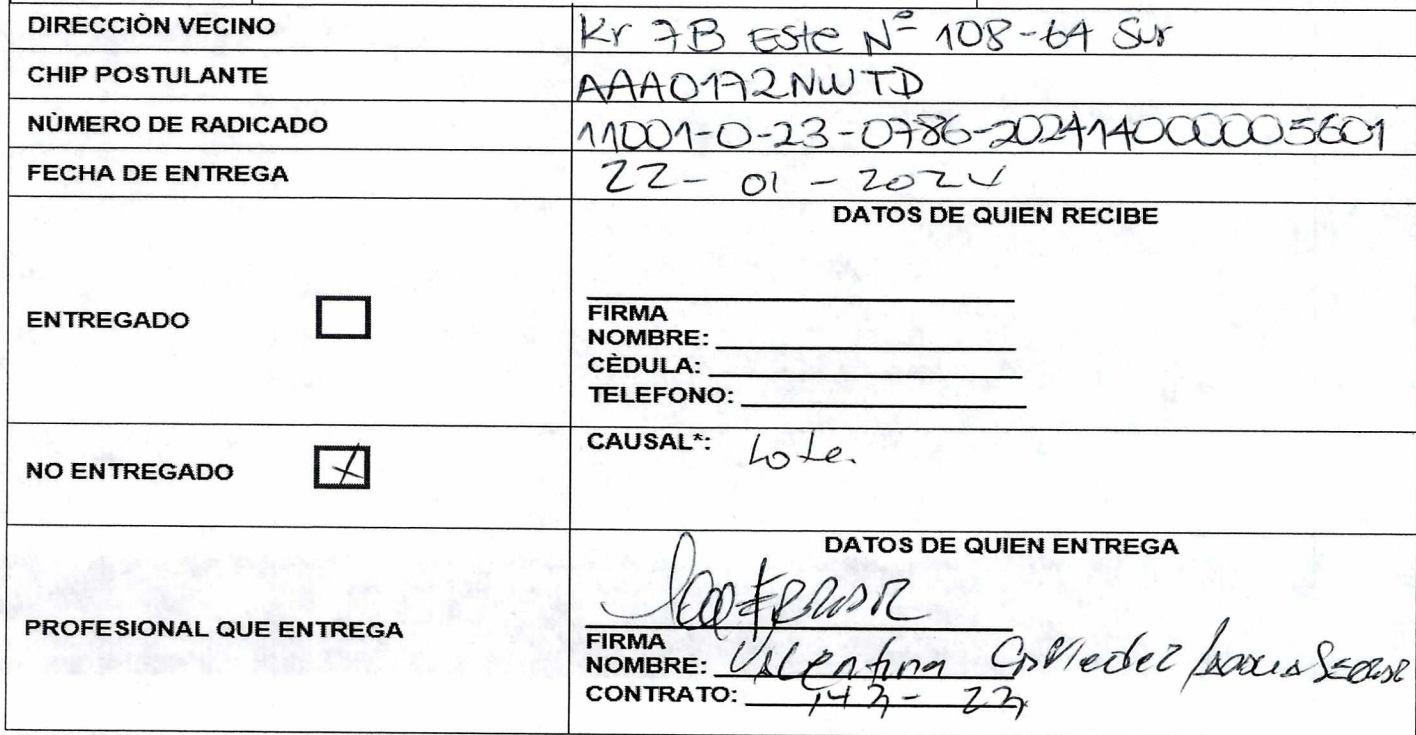 DIRECCIÒN VECINO Kr 7B Este Nº 108-64 Sur
CHIP POSTULANTE AAA0172NWTD
NÙMERO DE RADICADO 11001-0-23-0786-202414000005601
FECHA DE ENTREGA 22-01-2024
DATOS DE QUIEN RECIBE
ENTREGADO
FIRMA
NOMBRE:
CÈDULA:
TELEFONO:
NO ENTREGADO X
CAUSAL*: Lote.
DATOS DE QUIEN ENTREGA
PROFESIONAL QUE ENTREGA
FIRMA
NOMBRE: Valentina
CONTRATO: 143-23